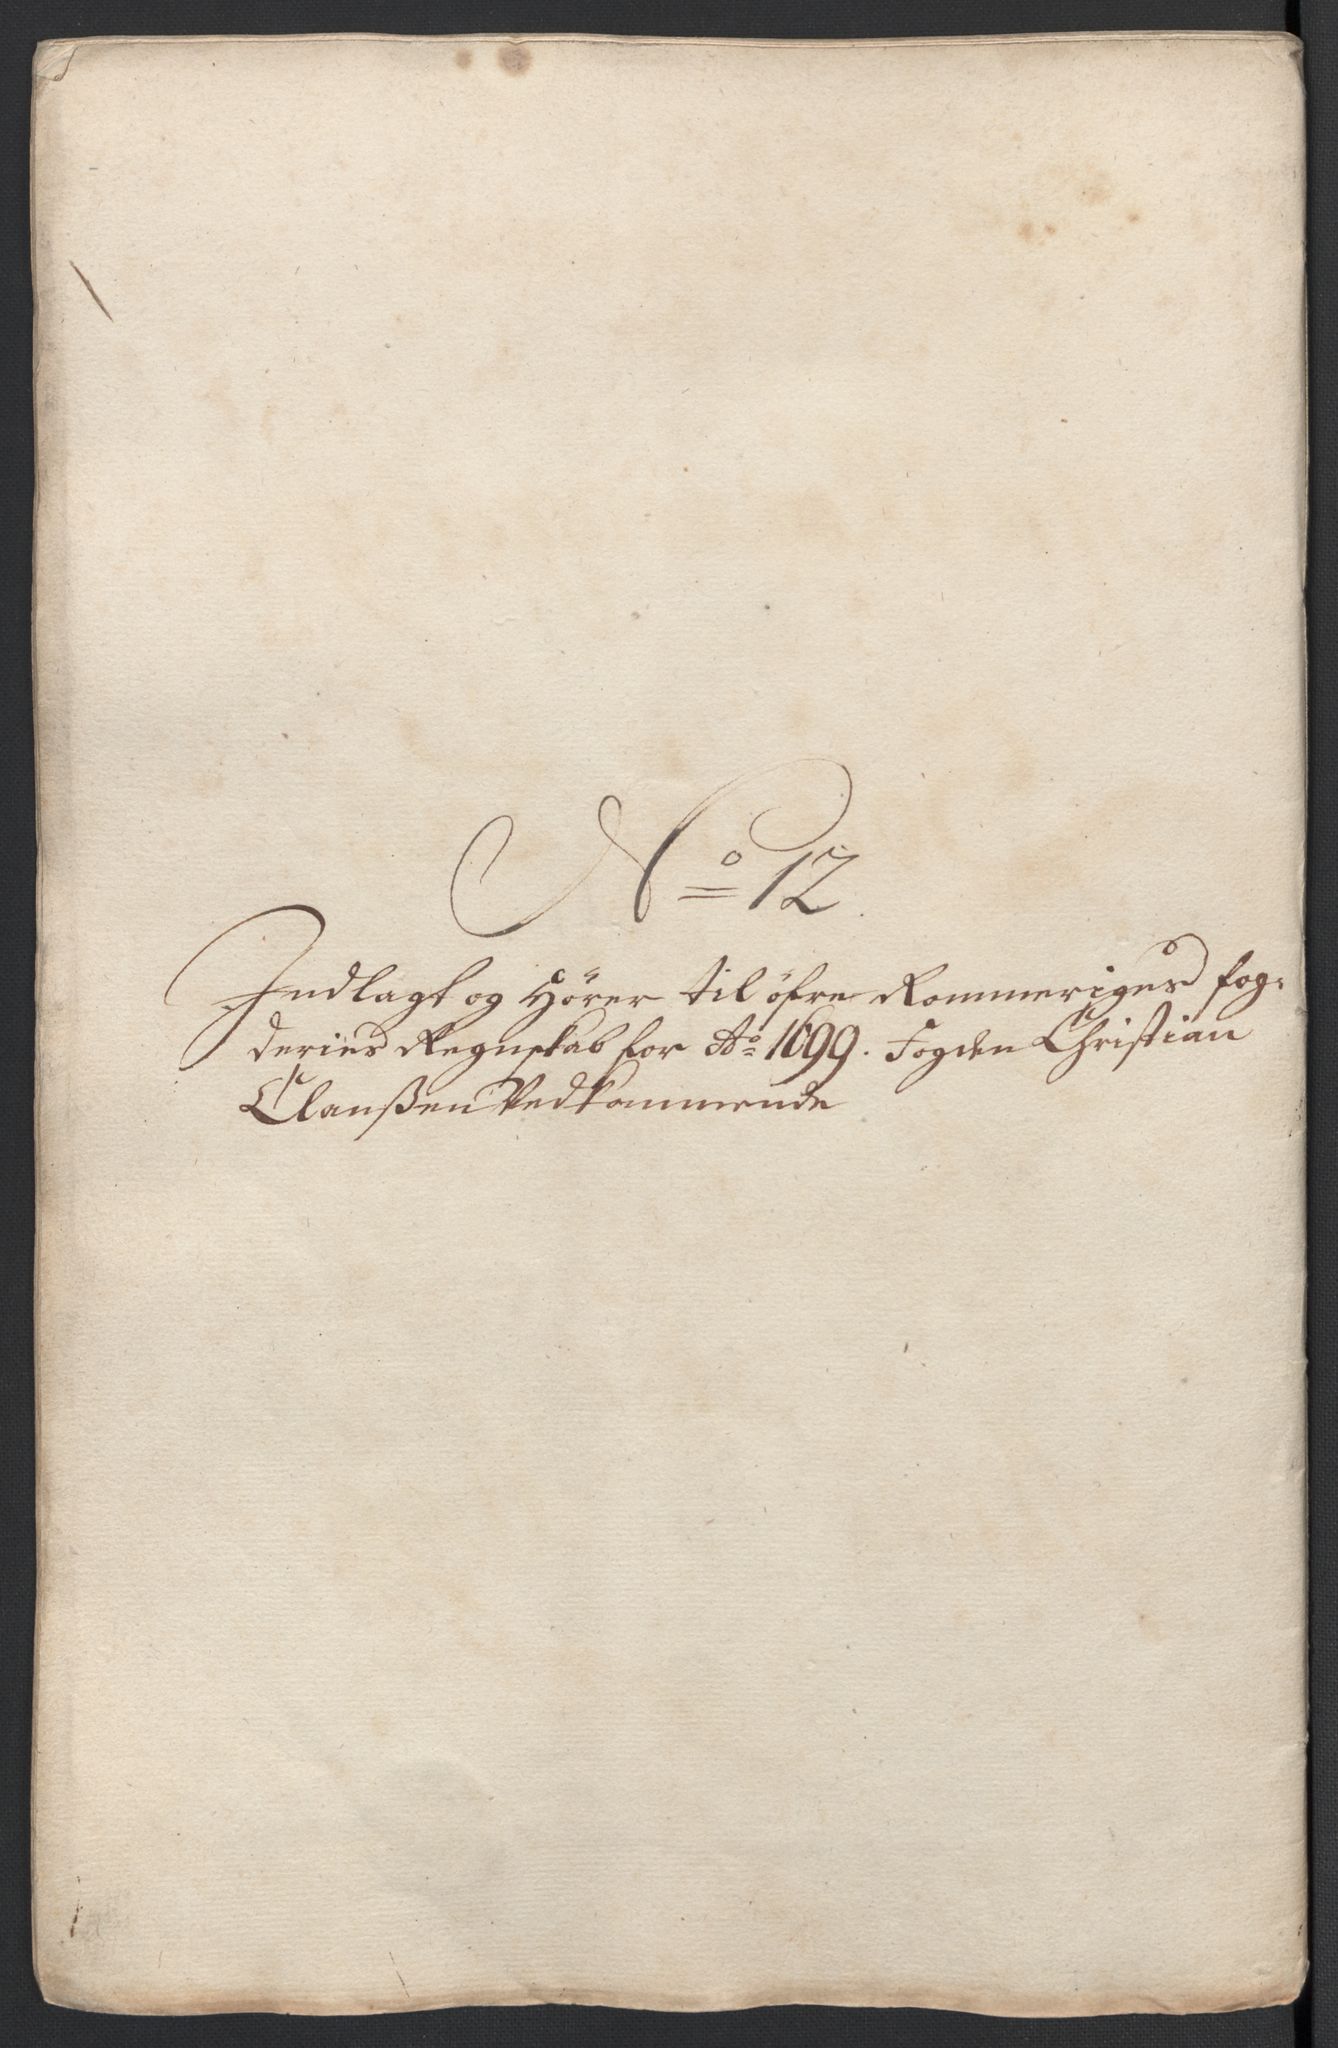 No 12.
Indlagt og Hører til öfre Rommeriges fog:
deries Regnskab for Ao 1699. Fogden Christian
Clanßen Vedkommende